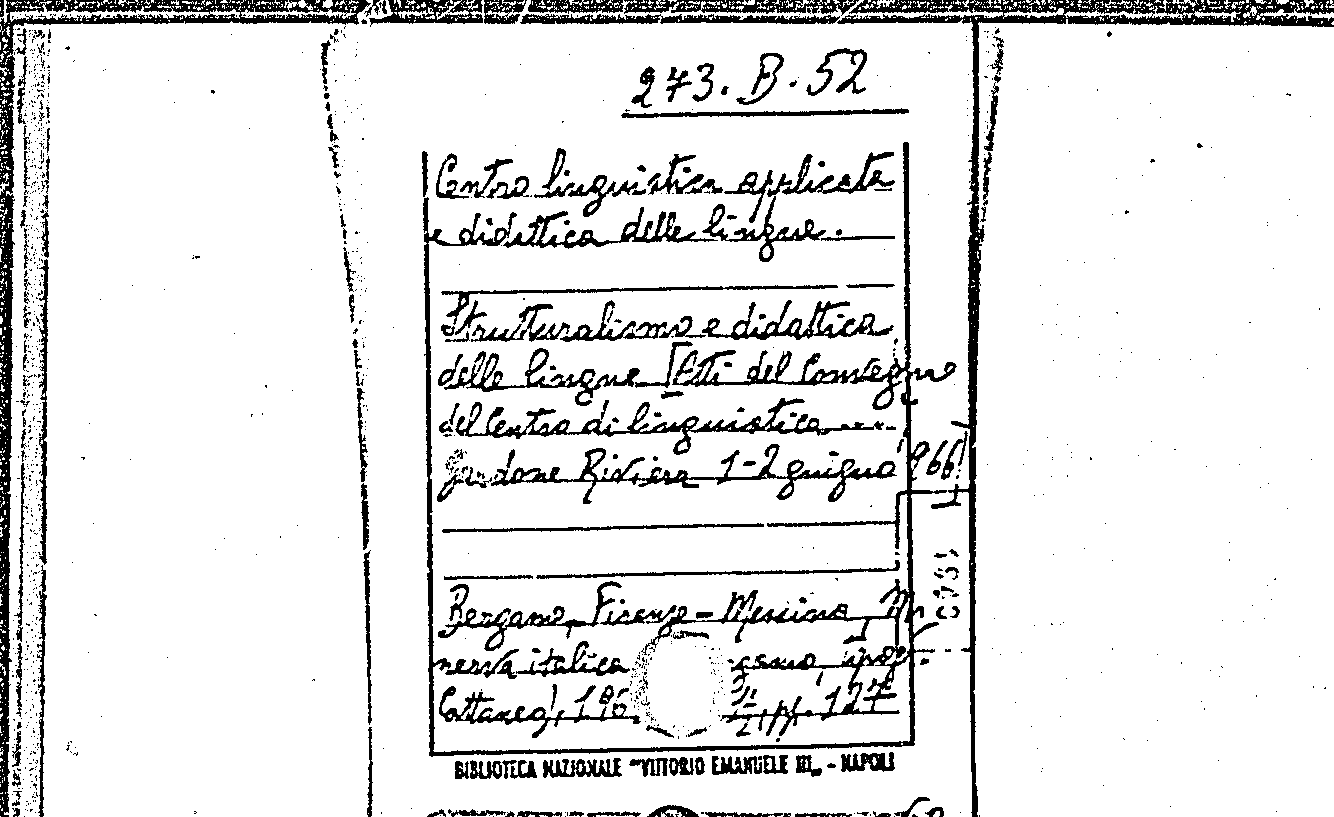 273. B. 52
Centro linguistica applicata
e didattica delle lingue.
Strutturalismo e didattica
delle lingue [Atti del Convegno
del Centro di linguistica.....
Gardone Riviera 1-2 giugno 1966]
Bergamo, Firenze - Messina, Mi-
nerva italica tipogr.
Cattaneo), 196 pp. 127
BIBLIOTECA NAZIONALE "VITTORIO EMANUELE III" - NAPOLI